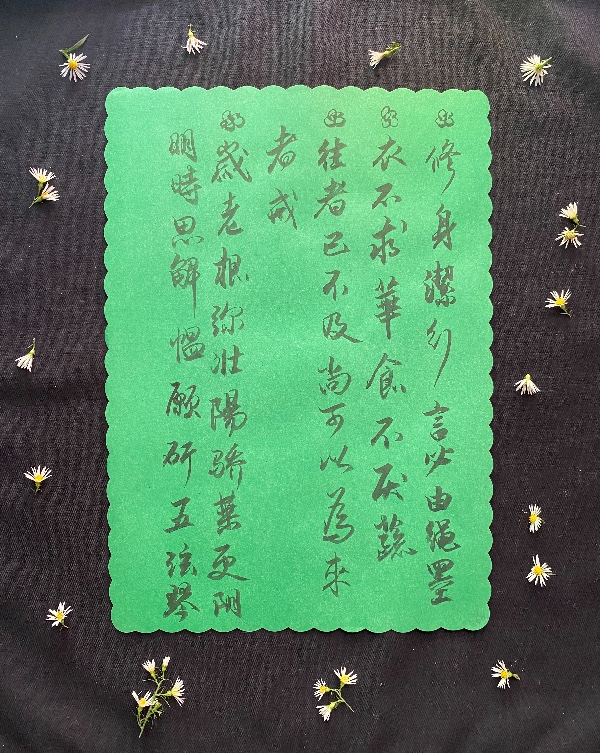 修身潔行言必由绳墨
衣不求華食不厌蔬
往者已不及尚可以為來
者戒
歲老根弥壮陽骄葉更阴
明時思解愠願斫五弦琴